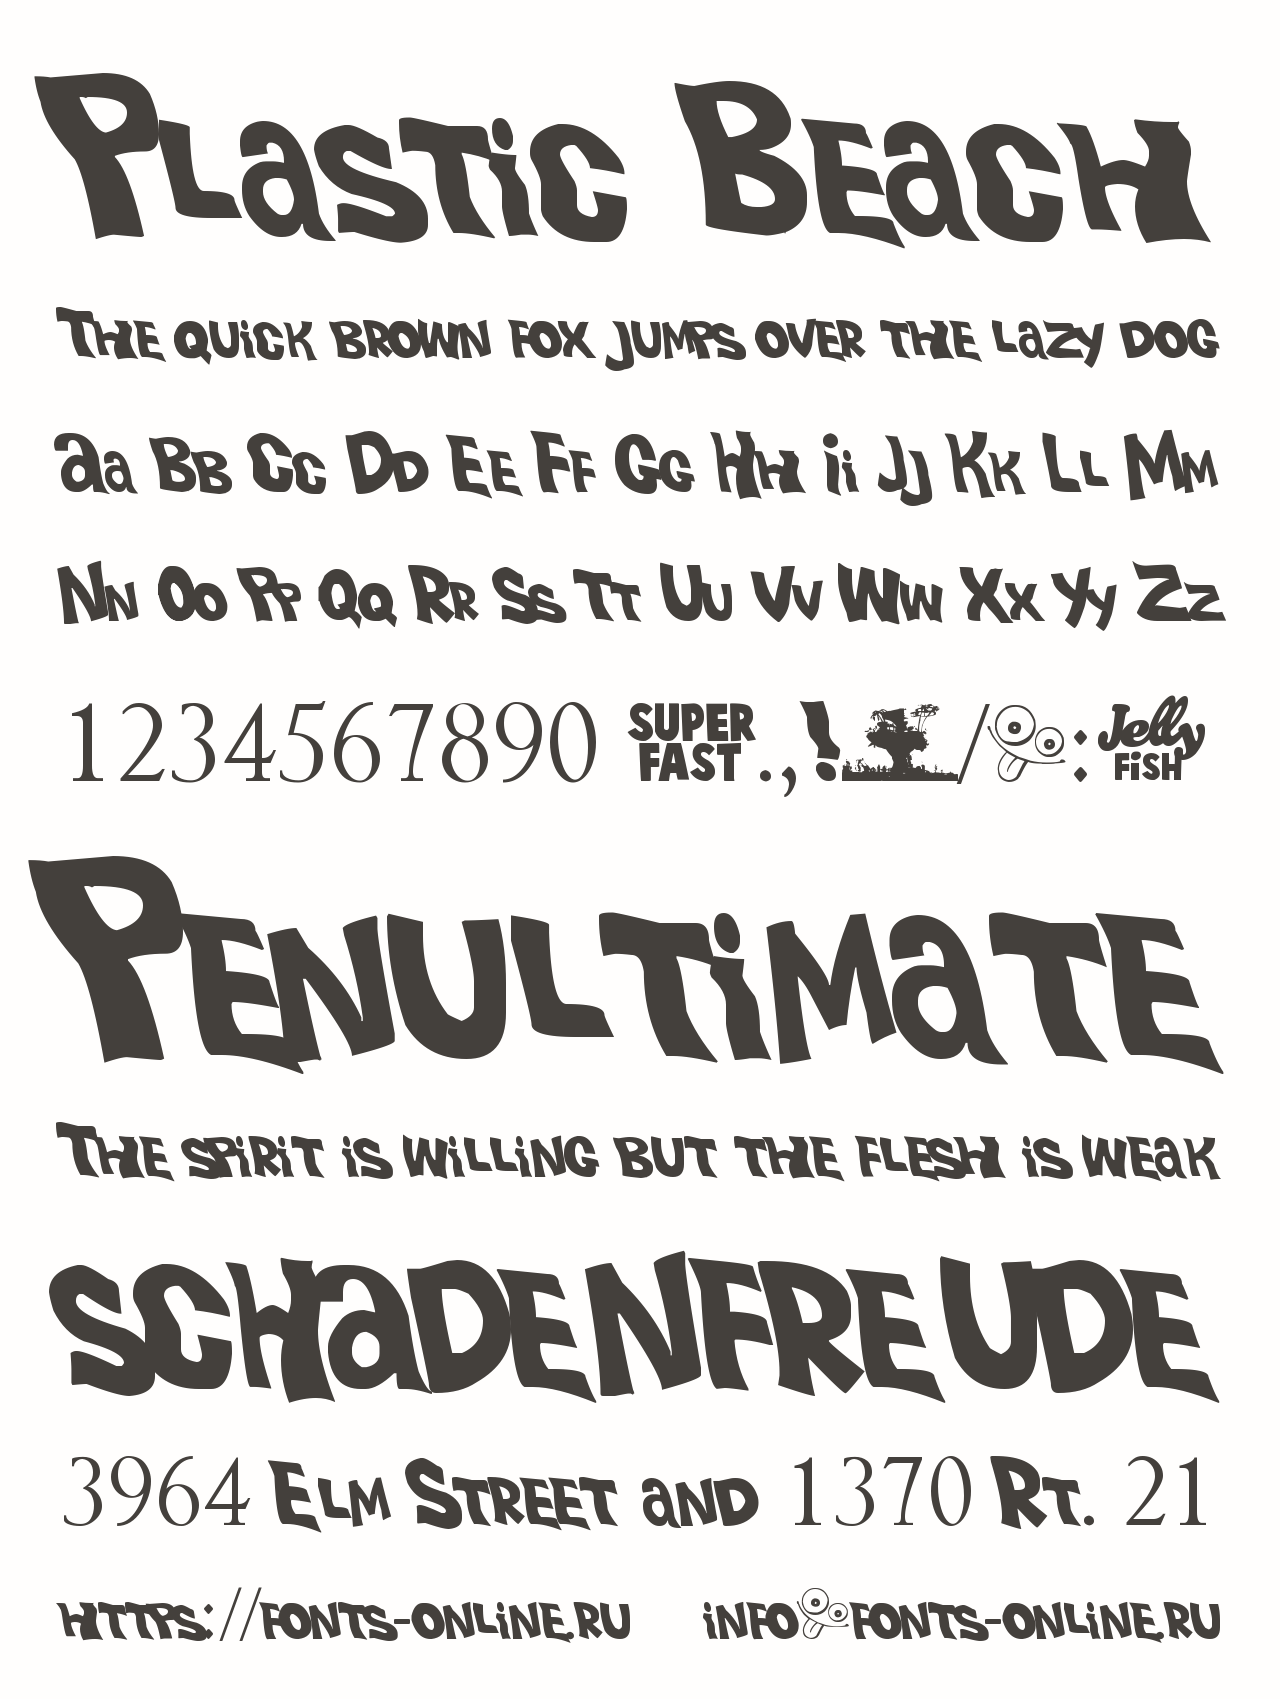 Plastic Beach
The quick brown fox jumps over the lazy dog
Aa Bb Cc Dd Ee Ff Gg Hh Ii Jj Kk Ll Mm
Nn Oo Pp Qq Rr Ss Tt Uu Vv Ww Xx Yy Zz
1234567890 SUPER FAST .,! / : Jelly FiSH
Penultimate
The spirit is willing but the flesh is weak
schadenfreude
3964 Elm Street and 1370 Rt. 21
https://fonts-online.ru info@fonts-online.ru